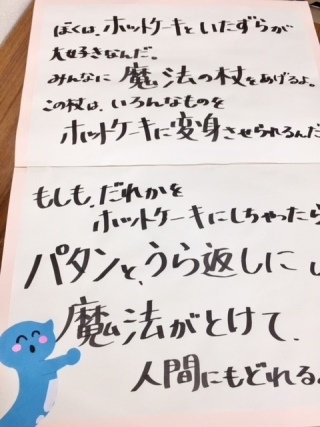 ぼくは、ホットケーキといたずらが
大好きなんだ。
みんなに魔法の杖をあげるよ。
この杖は、いろんなものを
ホットケーキに変身させられるんだ
もしも、だれかを
ホットケーキにしちゃったら
パタンと、うら返しにし
魔法がとけて、
人間にもどれる